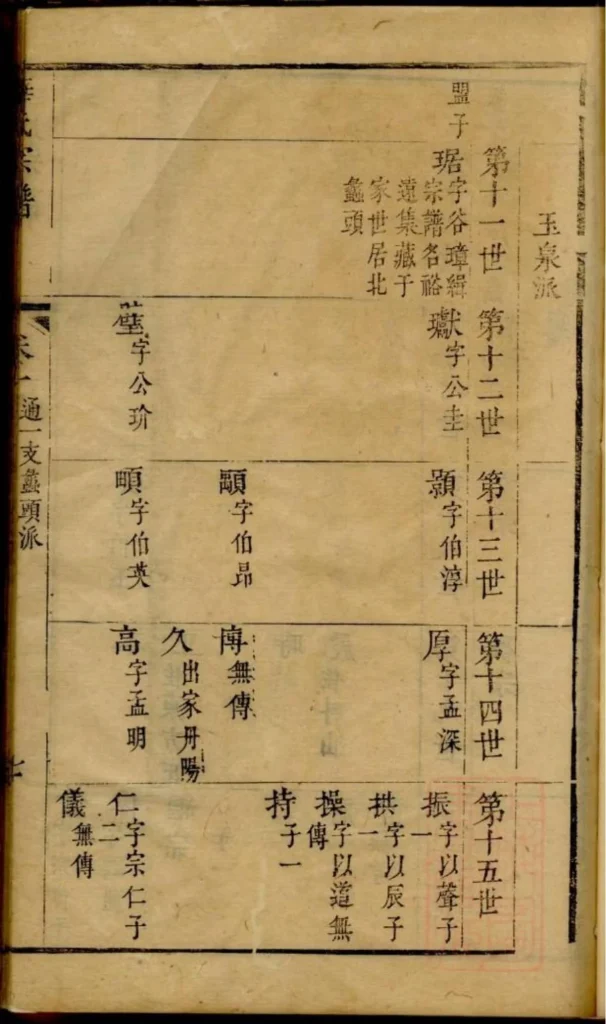 玉泉派
第十一世
盟子
琚字谷璋緝
宗譜名裕
遠集藏于
家世居北
蠡頭
第十二世
瓛字公圭
璧字公玠
第十三世
顥字伯淳
顒字伯昂
頔字伯英
第十四世
厚字孟深
博無傳
久出家丹陽
高字孟明
第十五世
振字以聲子
一
拱字以辰子
一
操字以道無
傳
持子一
仁字宗仁子
二
儀無傳
氏宗譜
卷一
通一支蠡頭派